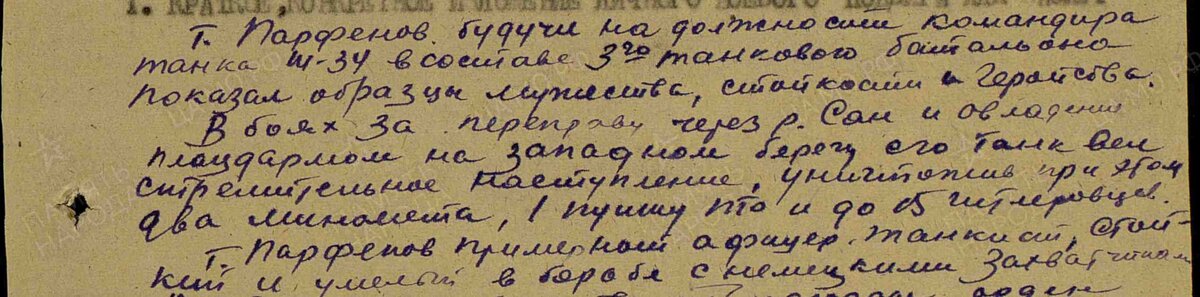 1. КРАТКОЕ, КОНКРЕТНОЕ ИЗЛОЖЕНИЕ ЛИЧНОГО БОЕВОГО ПОДВИГА ИЛИ
т. Парфенов будучи на должности командира
танка Ш-34 в составе 3го танкового батальона
показал образцы мужества, стойкости и Геройства.
В боях за переправу через р. Сан и овладении
плацдармом на западном берегу его танк вел
стрелительное наступление, уничтожив при этом
два миномета, 1 пушку ПТО и до 15 гитлеровцев.
т. Парфенов примерный офицер-танкист, стой-
кий и умелый в борьбе с немецкими захватчикам
орден